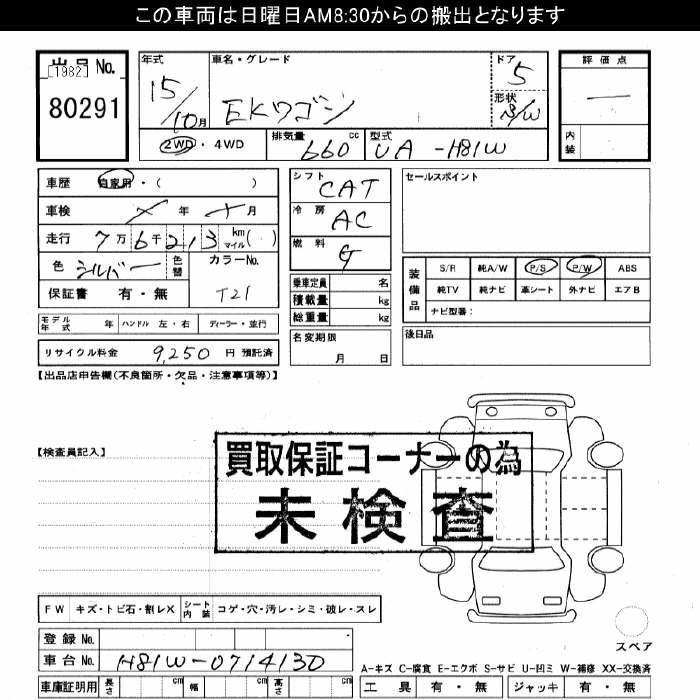 この車両は日曜日AM8:30からの搬出となります
出品No.
[1982]
80291
年式
15/10月
車名・グレード
EKワゴン
ドア
5
形状
S/W
評価点
—
内装
2WD・4WD
排気量
660 cc
型式
UA-H81W
車歴 自家用・( )
車検 年 月
走行 7万6千213 km マイル( )
色 シルバー 色替
カラーNo.
T21
保証書 有・無
シフト
CAT
冷房
AC
燃料
G
乗車定員 名
積載量 kg
総重量 kg
名変期限
月 日
セールスポイント
装備品
S/R 純A/W P/S P/W ABS
純TV 純ナビ 革シート 外ナビ エアB
ナビ型番:
後日品
モデル年式 年 ハンドル 左・右 ディーラー・並行
リサイクル料金 9,250 円 預託済
【出品店申告欄(不良箇所・欠品・注意事項等)】
【検査員記入】
買取保証コーナーの為
未検査
FW キズ・トビ石・割レX シート内装 コゲ・穴・汚レ・シミ・破レ・スレ
スペア
登録No.
車台No. H81W-0714130
車庫証明用 長さ cm 幅 cm 高さ cm
A-キズ C-腐食 E-エクボ S-サビ U-凹ミ W-補修 XX-交換済
工具 有・無 ジャッキ 有・無